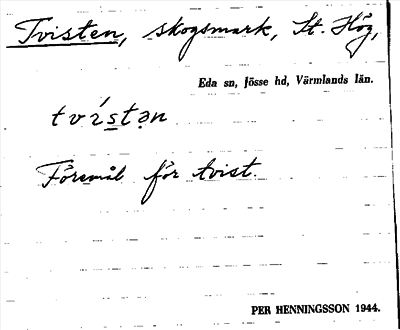 Tvisten, skogsmark, St. Hög,
Eda sn, Jösse hd, Värmlands län.
tvístən
Föremål för tvist.
PER HENNINGSSON 1944.